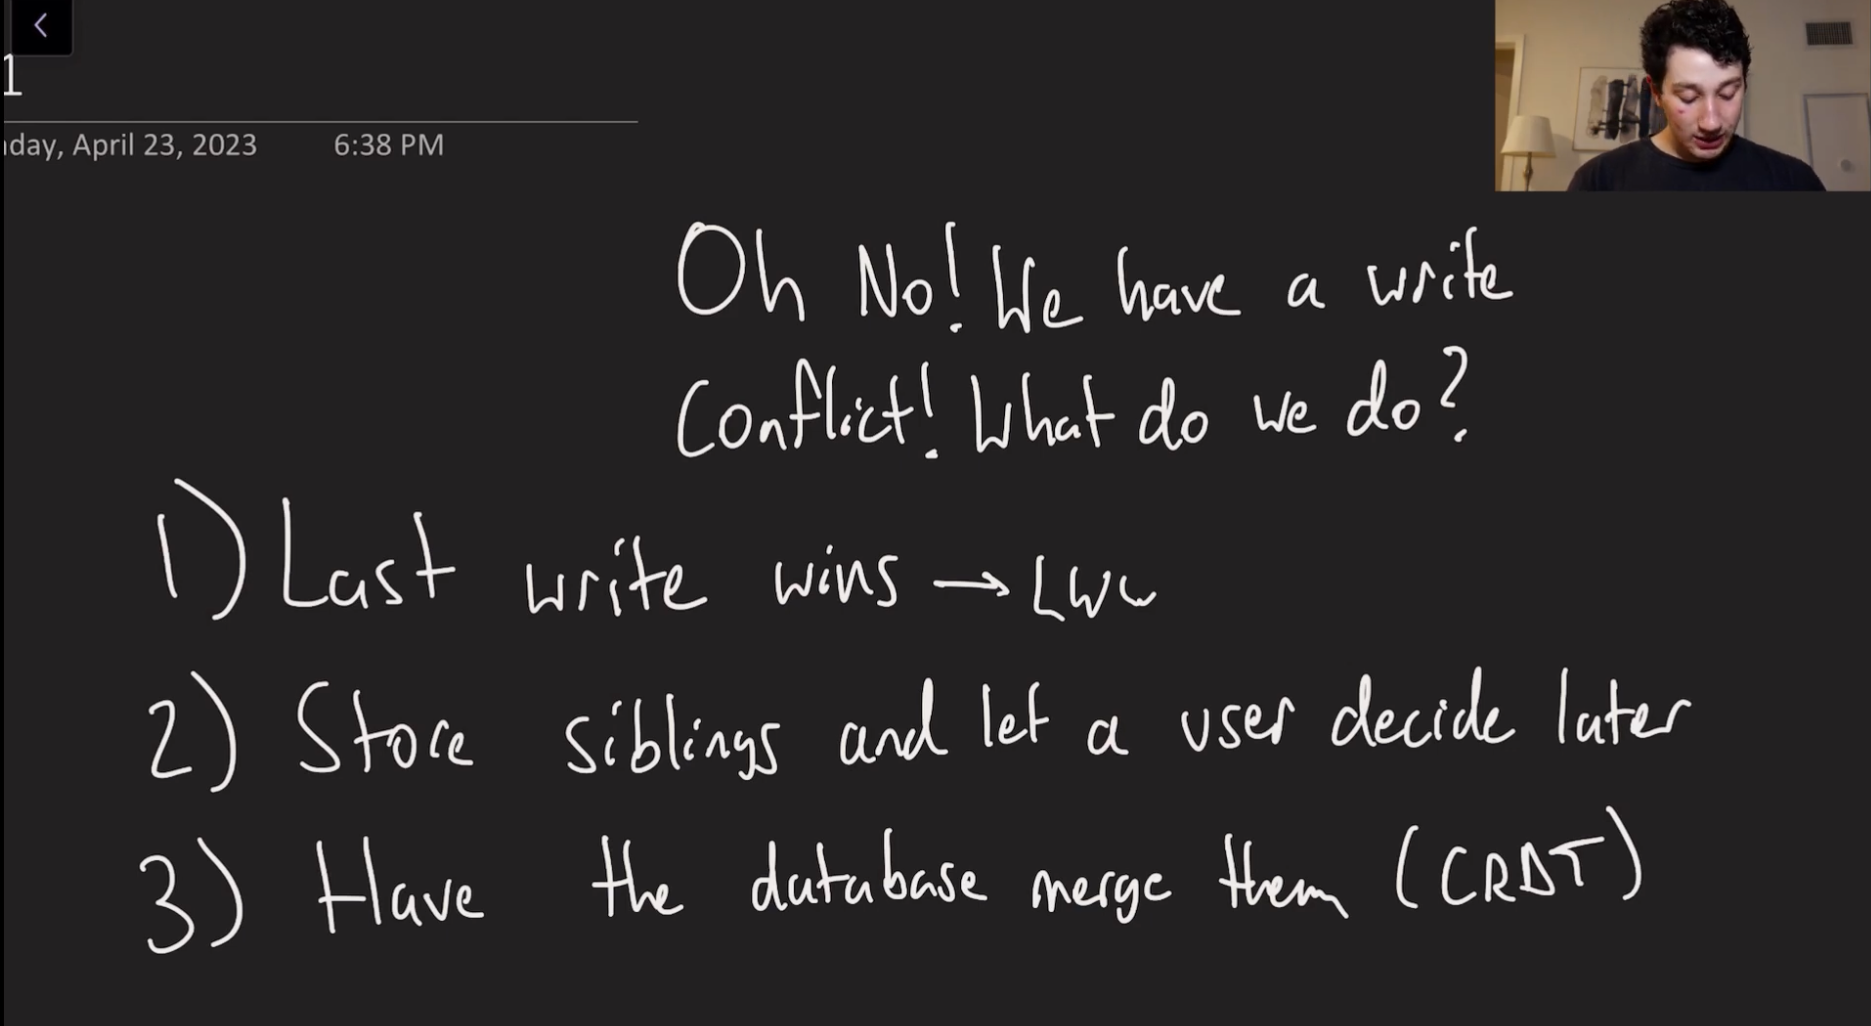 1
day, April 23, 2023 6:38 PM
Oh No! We have a write
Conflict! What do we do?
1) Last write wins → LWW
2) Store siblings and let a user decide later
3) Have the database merge them (CRDT)